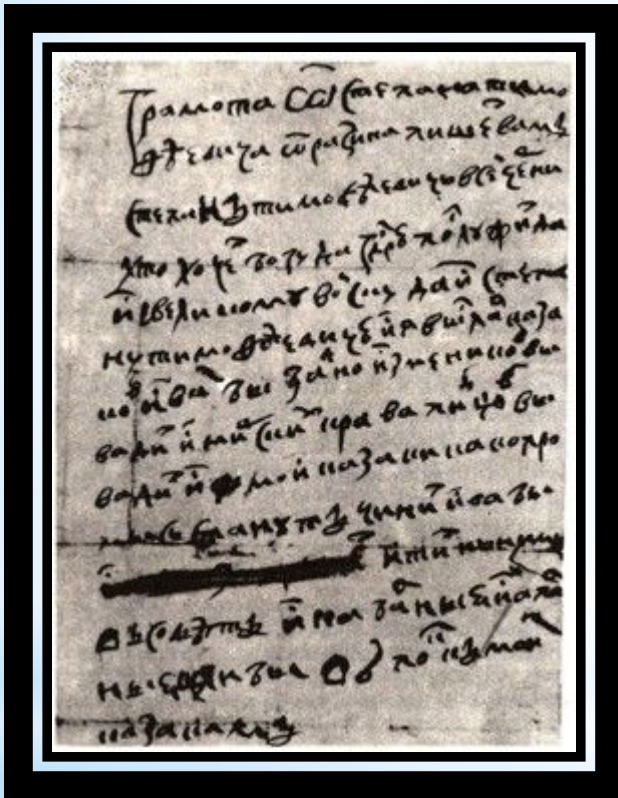 Грамота
ѿ разина пишет вам
Степан Тимофѣевичь всей черни
хто хочет богу да
и великому воиску да и Степа
ну Тимофѣевичю и я выслал каза
ков и вам бы заодно изменников вы
вадить и мирских кравапивцов вы
вадить и мои казаки како про
станутъ чинить и вам бы
итить к ним
в советъ и кабалныя и апал
ныя шли бы в полк к моим
казакам